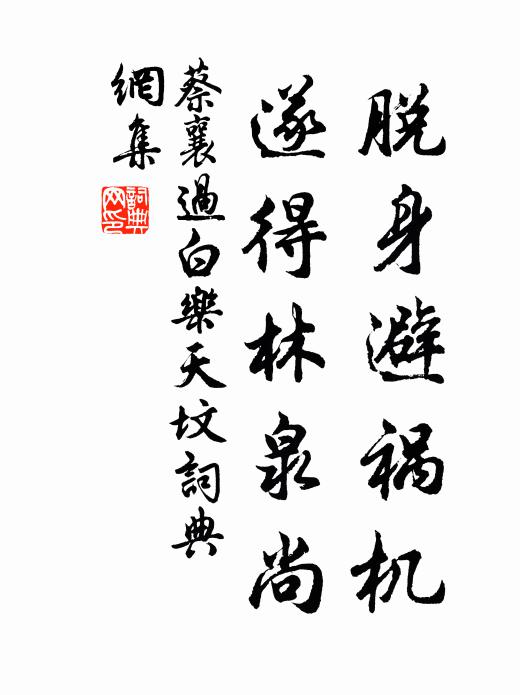 脱身避祸机
遂得林泉尚
蔡襄過白樂天坟詞典
網集
詞典網印